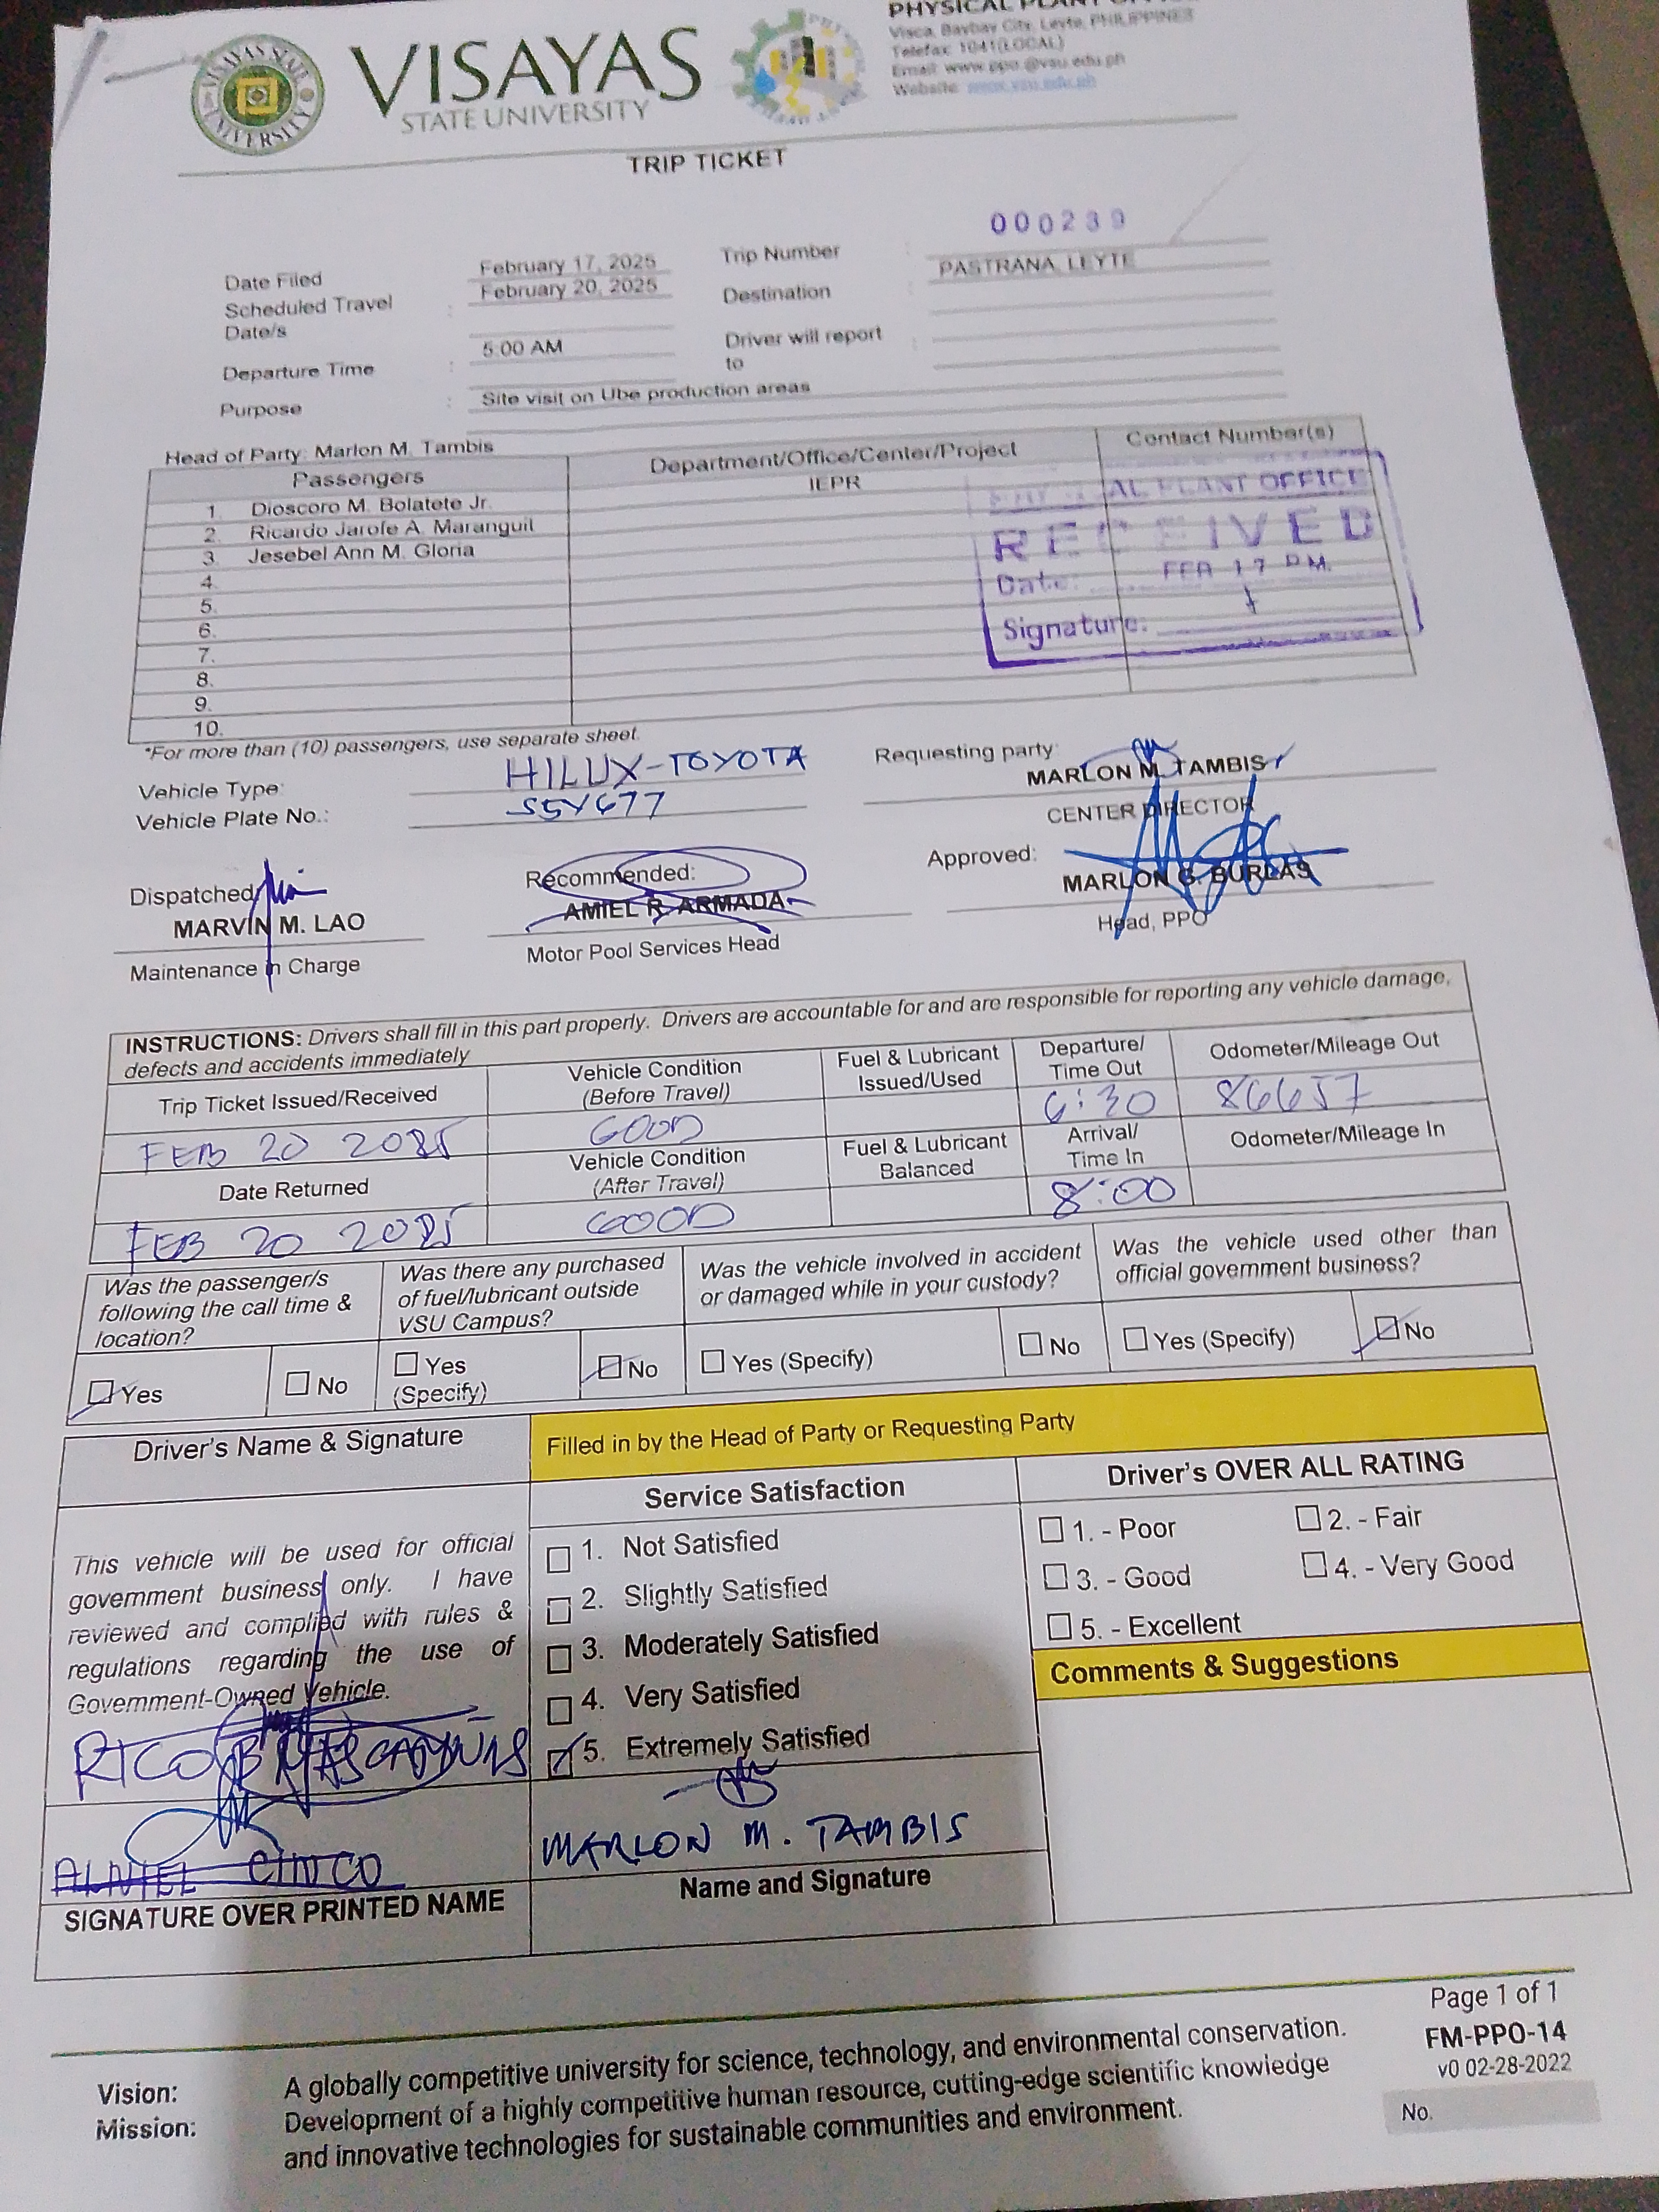 PHYSICAL PLANT
Visca, Baybay City, Leyte, PHILIPPINES
Telefax: 1041(LOCAL)
Email: www.ppo.@vsu.edu.ph
Website: www.vsu.edu.ph
VISAYAS STATE UNIVERSITY
VISAYAS
STATE UNIVERSITY
TRIP TICKET
Date Filed February 17, 2025 Trip Number : 000239
Scheduled Travel Date/s : February 20, 2025 Destination PASTRANA, LEYTE
Departure Time : 5:00 AM Driver will report to :
Purpose : Site visit on Ube production areas
Head of Party: Marlon M. Tambis
Passengers Department/Office/Center/Project Contact Number(s)
1. Dioscoro M. Bolatete Jr. IEPR
2. Ricardo Jarofe A. Maranguit
3. Jesebel Ann M. Gloria
4.
5.
6.
7.
8.
9.
10.
PLANT OFFICE
RECEIVED
Date: FEB 17 P.M.
Signature:
*For more than (10) passengers, use separate sheet.
Vehicle Type: HILUX-TOYOTA
Vehicle Plate No.:
Requesting party:
MARLON M. TAMBIS
CENTER DIRECTOR
Dispatched Recommended: Approved:
MARVIN M. LAO AMIEL R. ARMADA MARLON G. BURLAS
Maintenance in Charge Motor Pool Services Head Head, PPO
INSTRUCTIONS: Drivers shall fill in this part properly. Drivers are accountable for and are responsible for reporting any vehicle damage,
defects and accidents immediately
Trip Ticket Issued/Received Vehicle Condition (Before Travel) Fuel & Lubricant Issued/Used Departure/ Time Out Odometer/Mileage Out
FEB 20 2025 GOOD 6:30 86657
Date Returned Vehicle Condition (After Travel) Fuel & Lubricant Balanced Arrival/ Time In Odometer/Mileage In
FEB 20 2025 GOOD 8:00
Was the passenger/s following the call time & location?
Was there any purchased of fuel/lubricant outside VSU Campus?
Was the vehicle involved in accident or damaged while in your custody?
Was the vehicle used other than official government business?
Yes No Yes (Specify) No Yes (Specify) No Yes (Specify) No
Driver's Name & Signature
Filled in by the Head of Party or Requesting Party
Service Satisfaction Driver's OVER ALL RATING
This vehicle will be used for official
government business only. I have
reviewed and complied with rules &
regulations regarding the use of
Government-Owned Vehicle.
1. Not Satisfied
2. Slightly Satisfied
3. Moderately Satisfied
4. Very Satisfied
5. Extremely Satisfied
1. - Poor 2. - Fair
3. - Good 4. - Very Good
5. - Excellent
Comments & Suggestions
RICO B
CINCO
SIGNATURE OVER PRINTED NAME
MARLON M. TAMBIS
Name and Signature
Page 1 of 1
FM-PPO-14
v0 02-28-2022
No.
Vision: A globally competitive university for science, technology, and environmental conservation.
Mission: Development of a highly competitive human resource, cutting-edge scientific knowledge
and innovative technologies for sustainable communities and environment.